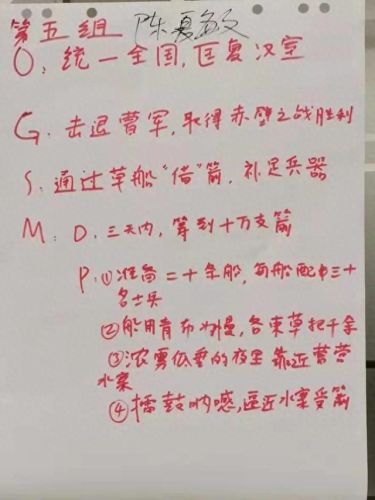 第五组 陈夏敏
O:统一全国,匡复汉室
G:击退曹军,取得赤壁之战胜利
S:通过草船“借”箭,补足兵器
M:D:三天内,筹到十万支箭
P:①准备二十条船,每船配 三十
名士兵
②船用青布为幔,各束草把千余
③浓雾低垂的夜里靠近曹营
水寨
④擂鼓呐喊,逼近水寨受箭